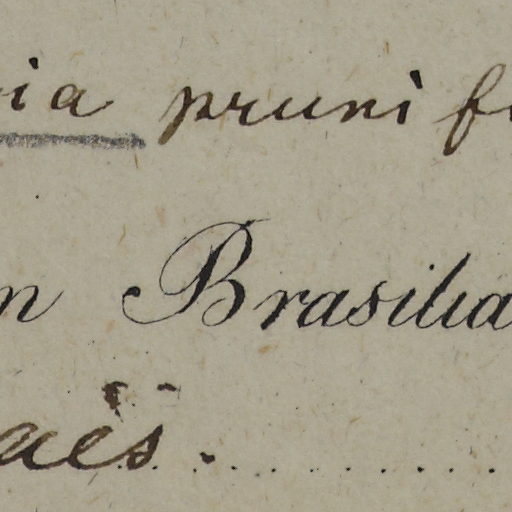 ia pruni f
n Brasilia
aës.